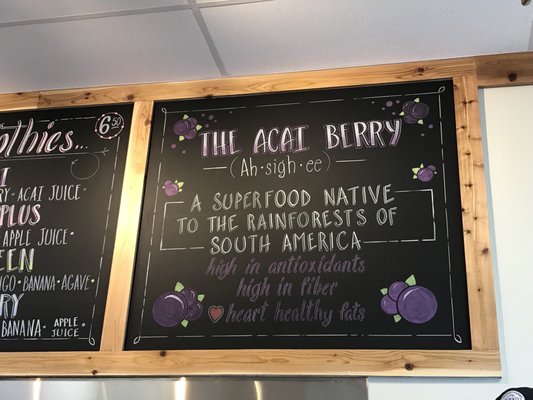 6.50
RY · ACAI JUICE
PLUS
APPLE JUICE
BANANA · AGAVE
BANANA · APPLE JUICE
THE ACAI BERRY
(Ah·sigh·ee)
A SUPERFOOD NATIVE
TO THE RAINFORESTS OF
SOUTH AMERICA
high in antioxidants
high in fiber
heart healthy fats